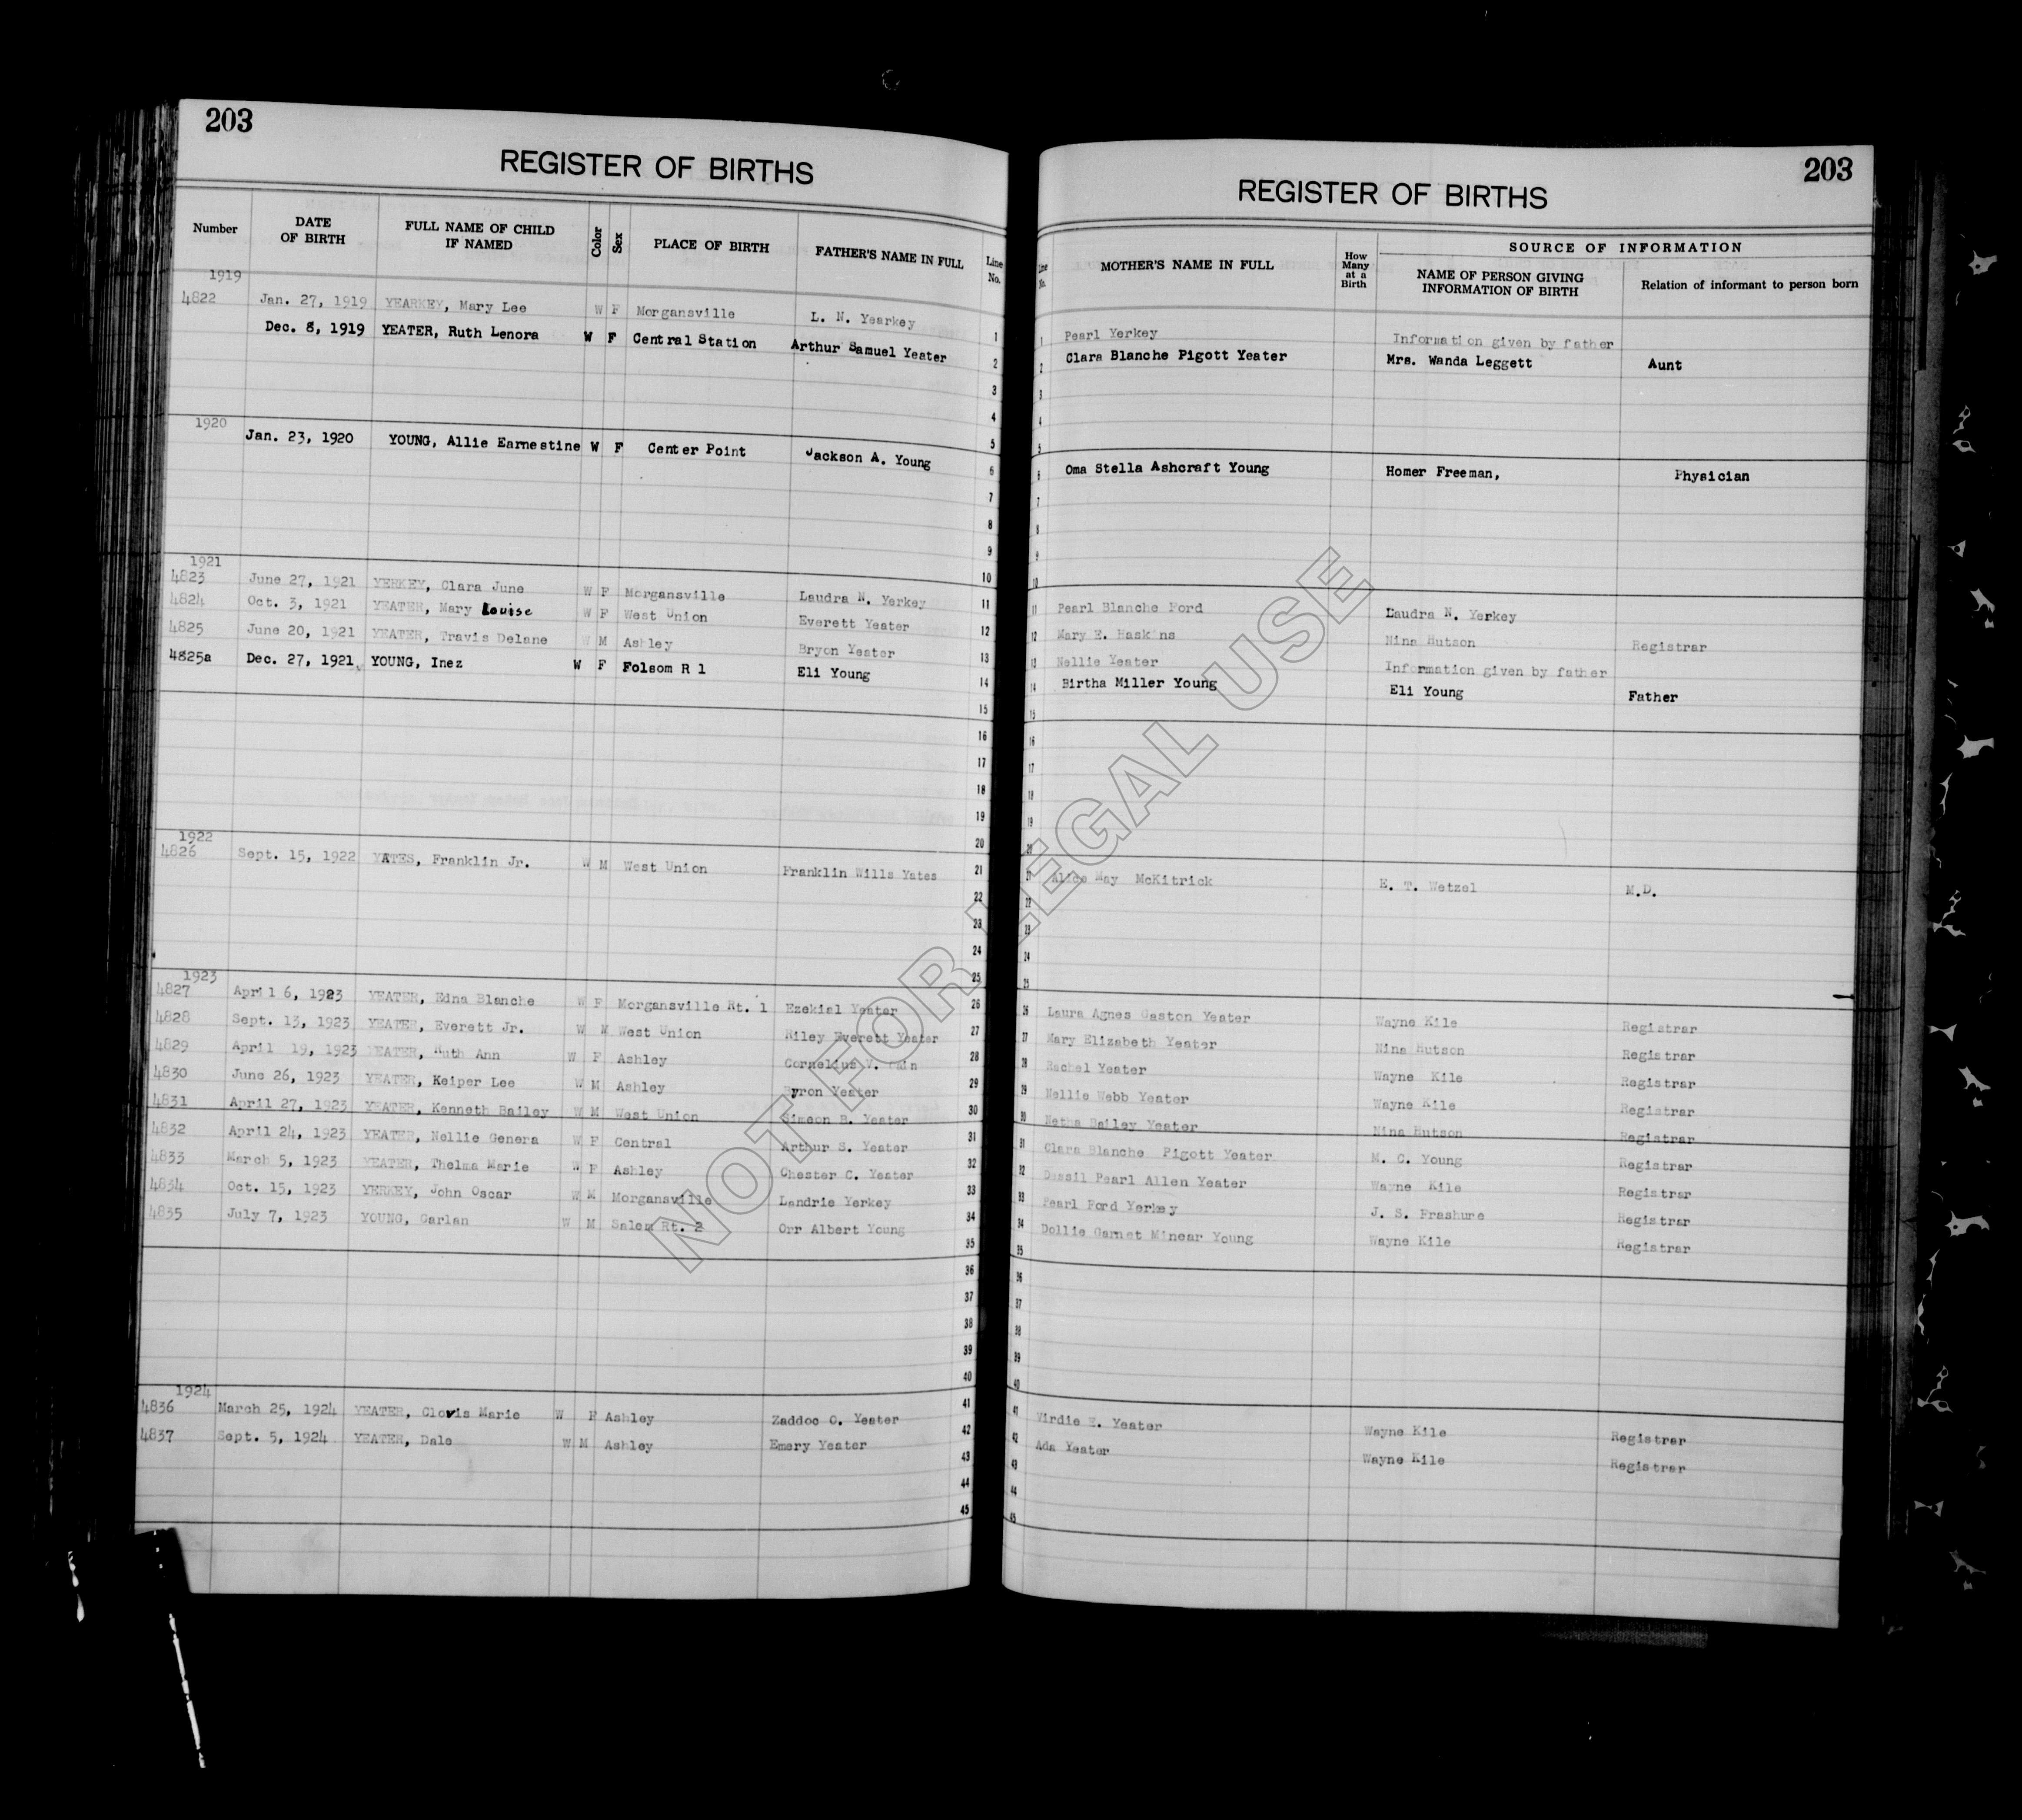 203
REGISTER OF BIRTHS
Number DATE OF BIRTH FULL NAME OF CHILD IF NAMED Color Sex PLACE OF BIRTH FATHER'S NAME IN FULL Line No.
1919
4822 Jan. 27, 1919 YEARKEY, Mary Lee W F Morgansville L. N. Yearkey 1
Dec. 8, 1919 YEATER, Ruth Lenora W F Central Station Arthur Samuel Yeater 2
3
4
1920 5
Jan. 23, 1920 YOUNG, Allie Earnestine W F Center Point Jackson A. Young 6
7
8
9
1921 10
4823 June 27, 1921 YERKEY, Clara June W F Morgansville Laudra N. Yerkey 11
4824 Oct. 3, 1921 YEATER, Mary Louise W F West Union Everett Yeater 12
4825 June 20, 1921 YEATER, Travis Delane W M Ashley Bryon Yeater 13
4825a Dec. 27, 1921 YOUNG, Inez W F Folsom R 1 Eli Young 14
15
16
17
18
19
1922 20
4826 Sept. 15, 1922 YATES, Franklin Jr. W M West Union Franklin Wills Yates 21
22
23
24
1923 25
4827 April 6, 1923 YEATER, Edna Blanche W F Morgansville Rt. 1 Ezekial Yeater 26
4828 Sept. 13, 1923 YEATER, Everett Jr. W M West Union Riley Everett Yeater 27
4829 April 19, 1923 YEATER, Ruth Ann W F Ashley Cornelius V. 28
4830 June 26, 1923 YEATER, Keiper Lee W M Ashley Byron Yeater 29
4831 April 27, 1923 YEATER, Kenneth Bailey W M West Union Simeon B. Yeater 30
4832 April 24, 1923 YEATER, Nellie Genera W F Central Arthur S. Yeater 31
4833 March 5, 1923 YEATER, Thelma Marie W F Ashley Chester C. Yeater 32
4834 Oct. 15, 1923 YERKEY, John Oscar W M Morgansville Landrie Yerkey 33
4835 July 7, 1923 YOUNG, Garlan W M Salem Rt. 2 Orr Albert Young 34
35
36
37
38
39
40
1924
4836 March 25, 1924 YEATER, Clovis Marie W F Ashley Zaddoc O. Yeater 41
4837 Sept. 5, 1924 YEATER, Dale W M Ashley Emery Yeater 42
43
44
45
203
REGISTER OF BIRTHS
Line No. MOTHER'S NAME IN FULL How Many at a Birth SOURCE OF INFORMATION
NAME OF PERSON GIVING INFORMATION OF BIRTH Relation of informant to person born
1 Pearl Yerkey Information given by father
2 Clara Blanche Pigott Yeater Mrs. Wanda Leggett Aunt
3
4
5
6 Oma Stella Ashcraft Young Homer Freeman, Physician
7
8
9
10
11 Pearl Blanche Ford Laudra N. Yerkey
12 Mary E. Haskins Nina Hutson Registrar
13 Nellie Yeater Information given by father
14 Birtha Miller Young Eli Young Father
15
16
17
18
19
20
21 Alice May McKitrick E. T. Wetzel M.D.
22
23
24
25
26 Laura Agnes Gaston Yeater Wayne Kile Registrar
27 Mary Elizabeth Yeater Nina Hutson Registrar
28 Rachel Yeater Wayne Kile Registrar
29 Nellie Webb Yeater Wayne Kile Registrar
30 Netha Bailey Yeater Nina Hutson Registrar
31 Clara Blanche Pigott Yeater M. C. Young Registrar
32 Dassil Pearl Allen Yeater Wayne Kile Registrar
33 Pearl Ford Yerkey J. S. Frashure Registrar
34 Dollie Garnet Minear Young Wayne Kile Registrar
35
36
37
38
39
40
41 Virdie E. Yeater Wayne Kile Registrar
42 Ada Yeater Wayne Kile Registrar
43
44
45
NOT FOR LEGAL USE